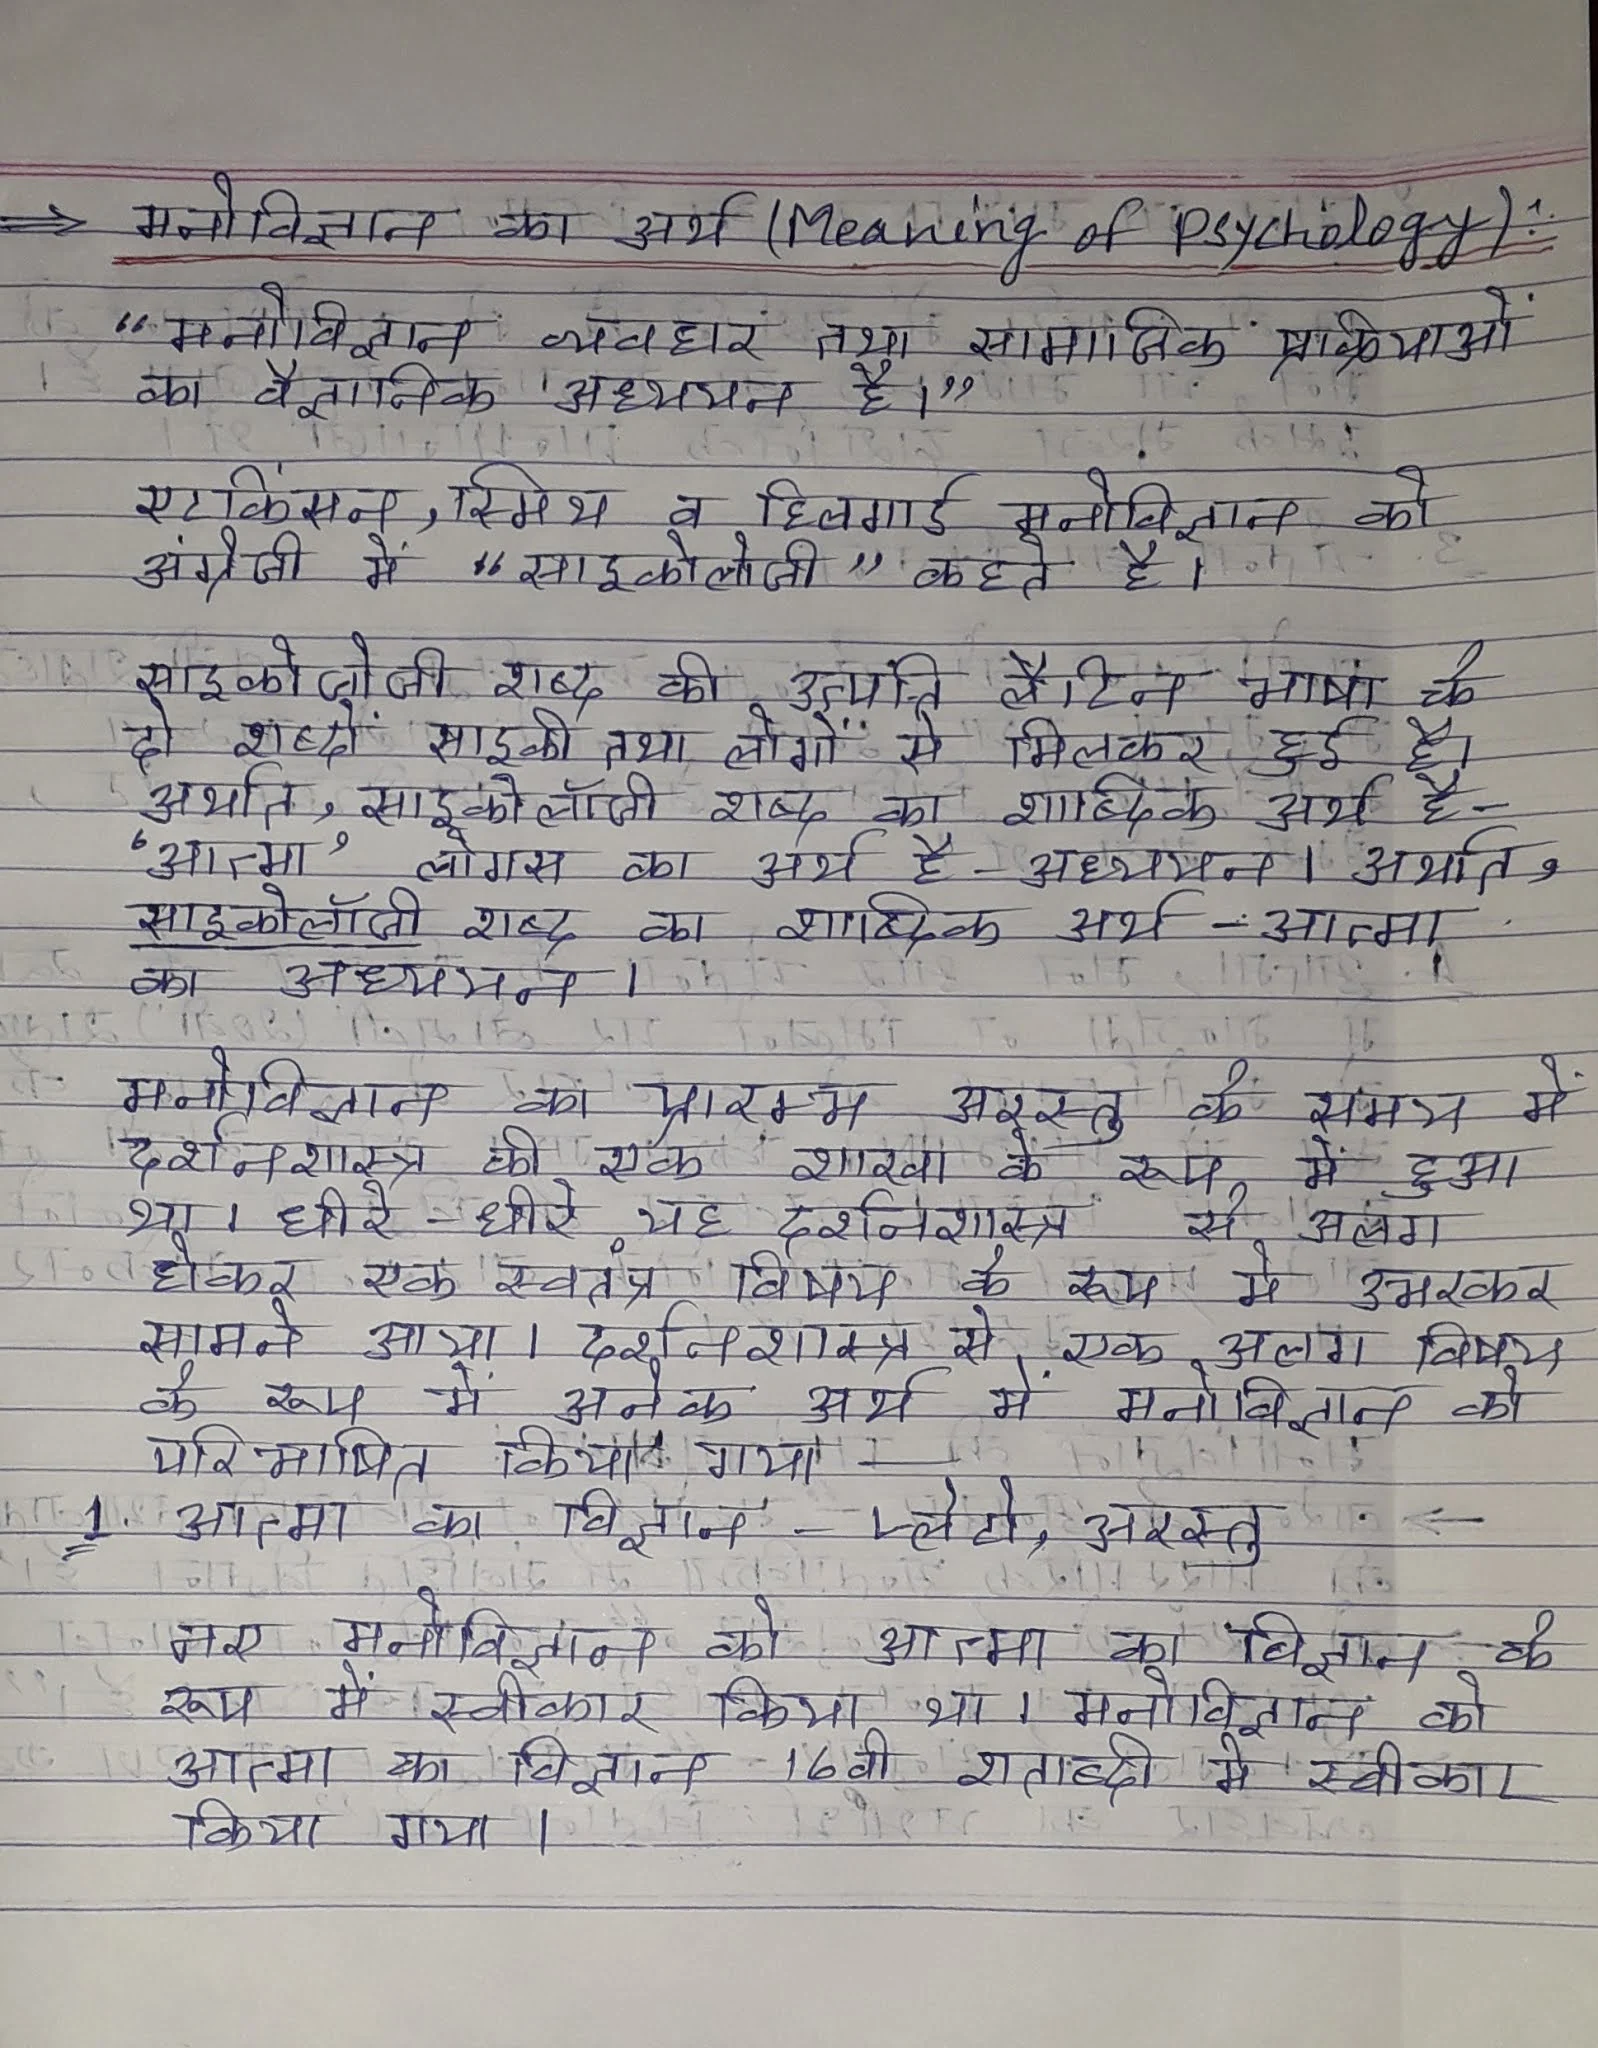 ⇒ मनोविज्ञान का अर्थ (Meaning of Psychology):
“मनोविज्ञान व्यवहार तथा सामाजिक प्रक्रियाओं
का वैज्ञानिक अध्ययन है।”
एटकिंसन, स्मिथ व हिलगार्ड मनोविज्ञान को
अंग्रेजी में “साइकोलोजी” कहते है।
साइकोलोजी शब्द की उत्पत्ति लैटिन भाषा के
दो शब्दों साइकी तथा लोगों से मिलकर हुई है।
अर्थात, साइकोलॉजी शब्द का शाब्दिक अर्थ है-
‘आत्मा’ लोगस का अर्थ है - अध्ययन। अर्थात,
साइकोलॉजी शब्द का शाब्दिक अर्थ - आत्मा
का अध्ययन।
मनोविज्ञान का प्रारम्भ अरस्तु के समय में
दर्शनशास्त्र की एक शाखा के रूप में हुआ
था। धीरे-धीरे यह दर्शनशास्त्र से अलग
होकर एक स्वतंत्र विषय के रूप मे उभरकर
सामने आया। दर्शनशास्त्र से एक अलग विषय
के रूप में अनेक अर्थ में मनोविज्ञान को
परिभाषित किया गया —
1. आत्मा का विज्ञान - प्लेटो, अरस्तु ←
मनोविज्ञान को आत्मा का विज्ञान के
रूप में स्वीकार किया था। मनोविज्ञान को
आत्मा का विज्ञान 16वी शताब्दी मे स्वीकार
किया गया।